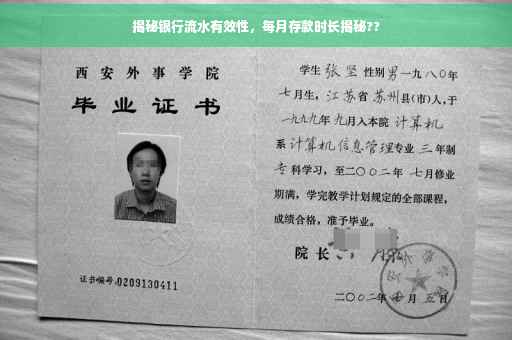 揭秘银行流水有效性，每月存款时长揭秘??
西安外事学院
毕业证书
证书编号:0209130411
学生 张坚 性别 男 一九八〇年
七月生，江苏省 苏州县(市)人,于
一九九九年 九月入本院 计算机
系 计算机信息管理专业 三 年制
专科学习，至二〇〇二年 七月修业
期满，学完教学计划规定的全部课程，
成绩合格，准予毕业。
院长
二〇〇二年 月 五日